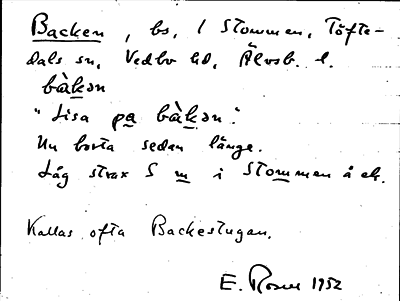 Backen, bs, / Stommen, Töfte-
dals sn, Vedbo hd, Älvsb. l.
bàkən
"Lisa pa bàkən".
Nu borta sedan länge.
Låg strax S m i Stommen å ek.
Kallas ofta Backestugan.
E. Rosell 1952